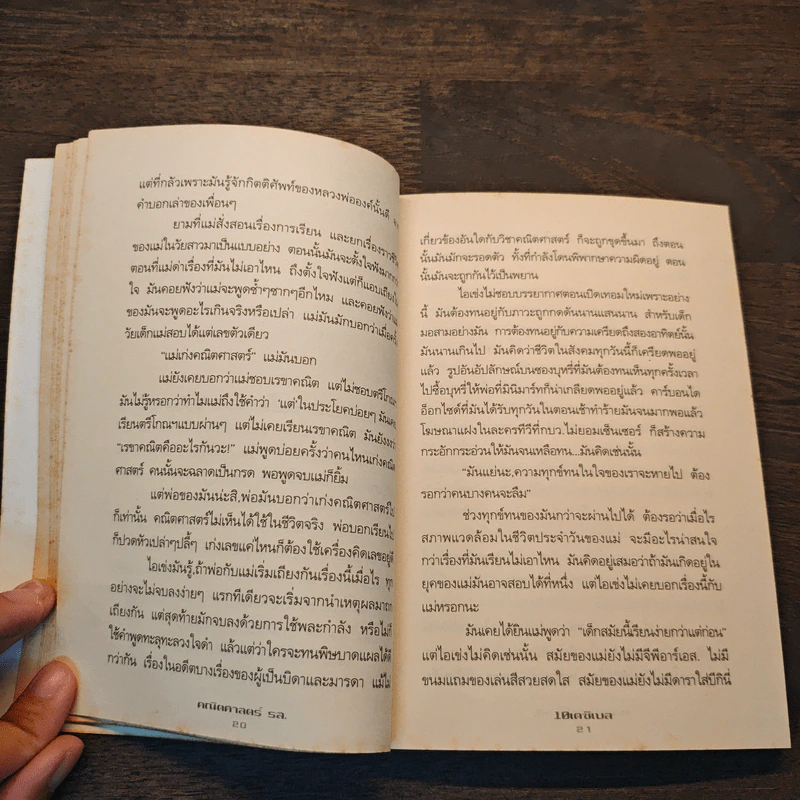 แต่ที่กลัวเพราะมันรู้จักกิตติศัพท์ของหลวงพ่อองค์นั้นดี
คำบอกเล่าของเพื่อนๆ
ยามที่แม่สั่งสอนเรื่องการเรียน และยกเรื่องราว
ของแม่ในวัยสาวมาเป็นแบบอย่าง ตอนนั้นมันจะตั้งใจฟังมาก
ตอนที่แม่ด่าเรื่องที่มันไม่เอาไหน ถึงตั้งใจฟังแต่ก็แอบเถียง
ใจ มันคอยฟังว่าแม่จะพูดซ้ำๆซากๆอีกไหม และคอยฟังว่า
ของมันจะพูดอะไรเกินจริงหรือเปล่า แม่มันมักบอกว่าเมื่อครั้ง
วัยเด็กแม่สอบได้แต่เลขตัวเดียว
“แม่เก่งคณิตศาสตร์” แม่มันบอก
แม่ยังเคยบอกว่าแม่ชอบเรขาคณิต แต่ไม่ชอบตรีโกณฯ
มันไม่รู้หรอกว่าทำไมแม่ถึงใช้คำว่า ‘แต่’ในประโยคบ่อยๆ
เรียนตรีโกณฯแบบผ่านๆ แต่ไม่เคยเรียนเรขาคณิต มันยังงงว่า
“เรขาคณิตคืออะไรกันวะ!” แม่พูดบ่อยครั้งว่าคนไหนเก่งคณิต
ศาสตร์ คนนั้นจะฉลาดเป็นกรด พอพูดจบแม่ก็ยิ้ม
แต่พ่อของมันน่ะสิ,พ่อมันบอกว่าเก่งคณิตศาสตร์ไป
ก็เท่านั้น คณิตศาสตร์ไม่เห็นได้ใช้ในชีวิตจริง พ่อบอกเรียนไป
ก็ปวดหัวเปล่าๆปลี้ๆ เก่งเลขแค่ไหนก็ต้องใช้เครื่องคิดเลขอยู่ดี
ไอเข่งมันรู้,ถ้าพ่อกับแม่เริ่มเถียงกันเรื่องนี้เมื่อไร ทุก
อย่างจะไม่จบลงง่ายๆ แรกทีเดียวจะเริ่มจากนำเหตุผลมาถก
เถียงกัน แต่สุดท้ายมักจบลงด้วยการใช้พละกำลัง หรือไม่ก็
ใช้คำพูดทะลุทะลวงใจดำ แล้วแต่ว่าใครจะทนพิษบาดแผลได้ดี
กว่ากัน เรื่องในอดีตบางเรื่องของผู้เป็นบิดาและมารดา แม้ไม่
คณิตศาสตร์ รส.
20
เกี่ยวข้องอันใดกับวิชาคณิตศาสตร์ ก็จะถูกขุดขึ้นมา ถึงตอน
นั้นมันมักจะรอดตัว ทั้งที่กำลังโดนพิพากษาความผิดอยู่ ตอน
นั้นมันจะถูกกันไว้เป็นพยาน
ไอเข่งไม่ชอบบรรยากาศตอนเปิดเทอมใหม่เพราะอย่าง
นี้ มันต้องทนอยู่กับภาวะถูกกดดันนานแสนนาน สำหรับเด็ก
มอสามอย่างมัน การต้องทนอยู่กับความเครียดถึงสองอาทิตย์นั้น
มันนานเกินไป มันคิดว่าชีวิตในสังคมทุกวันนี้ก็เครียดพออยู่
แล้ว รูปอันอัปลักษณ์บนซองบุหรี่ที่มันต้องทนเห็นทุกครั้งเวลา
ไปซื้อบุหรี่ให้พ่อที่มินิมาร์ทก็น่าเกลียดพออยู่แล้ว คาร์บอนได
อ็อกไซด์ที่มันได้รับทุกวันในตอนเช้าทำร้ายมันจนมากพอแล้ว
โฆษณาแฝงในละครทีวีที่กบว.ไม่ยอมเซ็นเซอร์ ก็สร้างความ
กระอักกระอ่วนให้มันจนเหลือทน...มันคิดเช่นนั้น
“มันแย่นะ,ความทุกข์ทนในใจของเราจะหายไป ต้อง
รอกว่าคนบางคนจะลืม”
ช่วงทุกข์ทนของมันกว่าจะผ่านไปได้ ต้องรอว่าเมื่อไร
สภาพแวดล้อมในชีวิตประจำวันของแม่ จะมีอะไรน่าสนใจ
กว่าเรื่องที่มันเรียนไม่เอาไหน มันคิดอยู่เสมอว่าถ้ามันเกิดอยู่ใน
ยุคของแม่มันอาจสอบได้ที่หนึ่ง แต่ไอเข่งไม่เคยบอกเรื่องนี้กับ
แม่หรอกนะ
มันเคยได้ยินแม่พูดว่า “เด็กสมัยนี้เรียนง่ายกว่าแต่ก่อน”
แต่ไอเข่งไม่คิดเช่นนั้น สมัยของแม่ยังไม่มีจีพีอาร์เอส. ไม่มี
ขนมแถมของเล่นสีสวยสดใส สมัยของแม่ยังไม่มีดาราใส่บีกินี่
10เดซิเบล
21